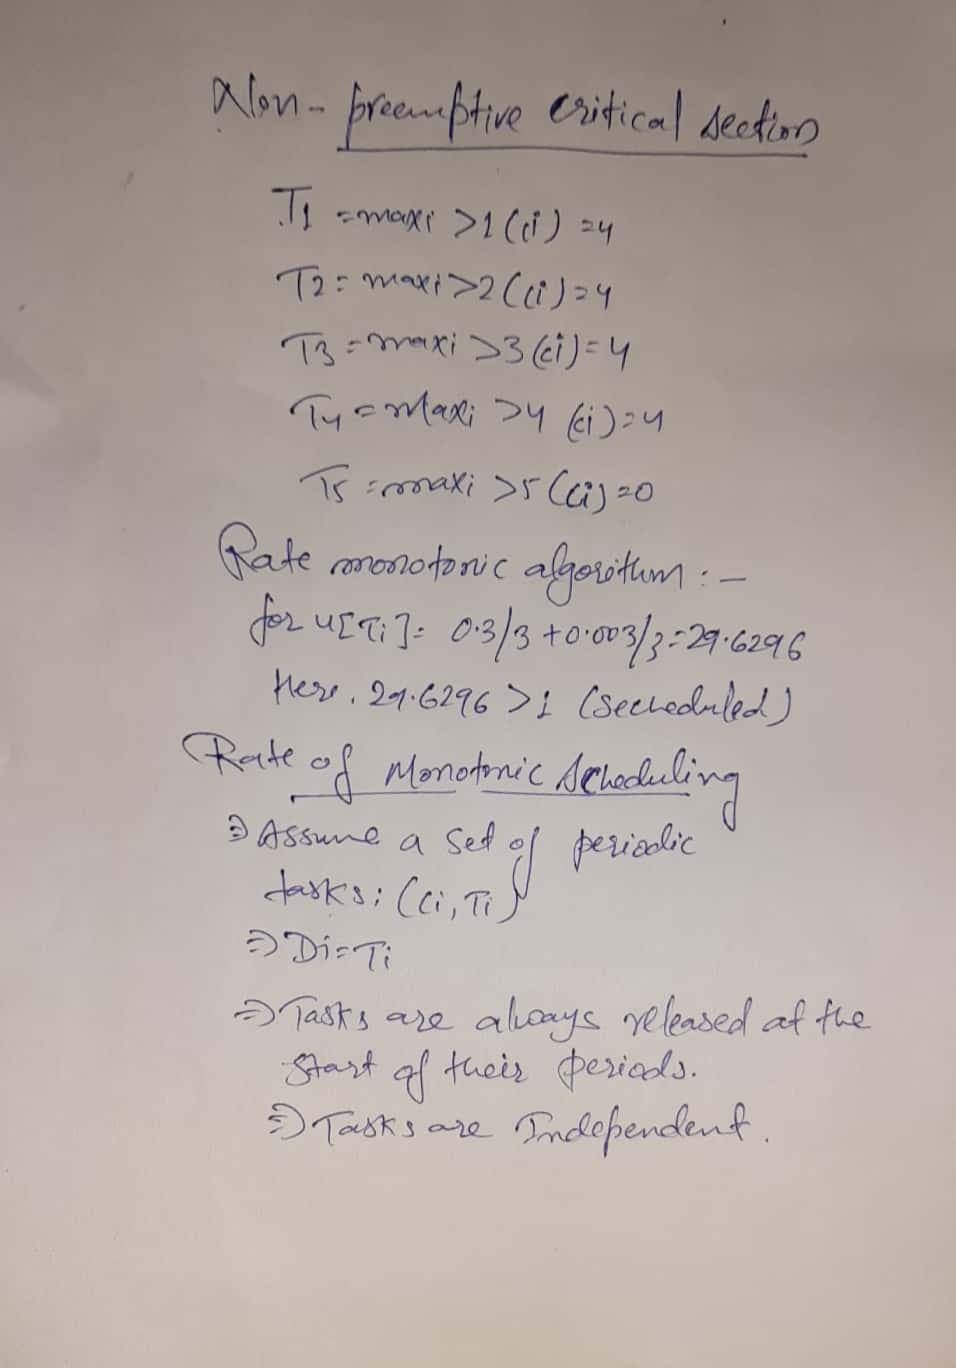 Non-preemptive critical section
T1 =maxi >1 (ci) =4
T2 = maxi >2 (ci) =4
T3 = maxi >3 (ci) =4
T4 = Maxi >4 (ci) =4
T5 = maxi >5 (ci) =0
Rate monotonic algorithm :-
for u[Ti] = 0.3/3 +0.003/3 =29.6296
Here, 29.6296 >1 (Secheduled)
Rate of Monotonic Scheduling
⇒ Assume a Set of periodic
tasks: (Ci, Ti)
⇒ Di=Ti
⇒ Tasks are always released at the
Start of their periods.
⇒ Tasks are Independent.